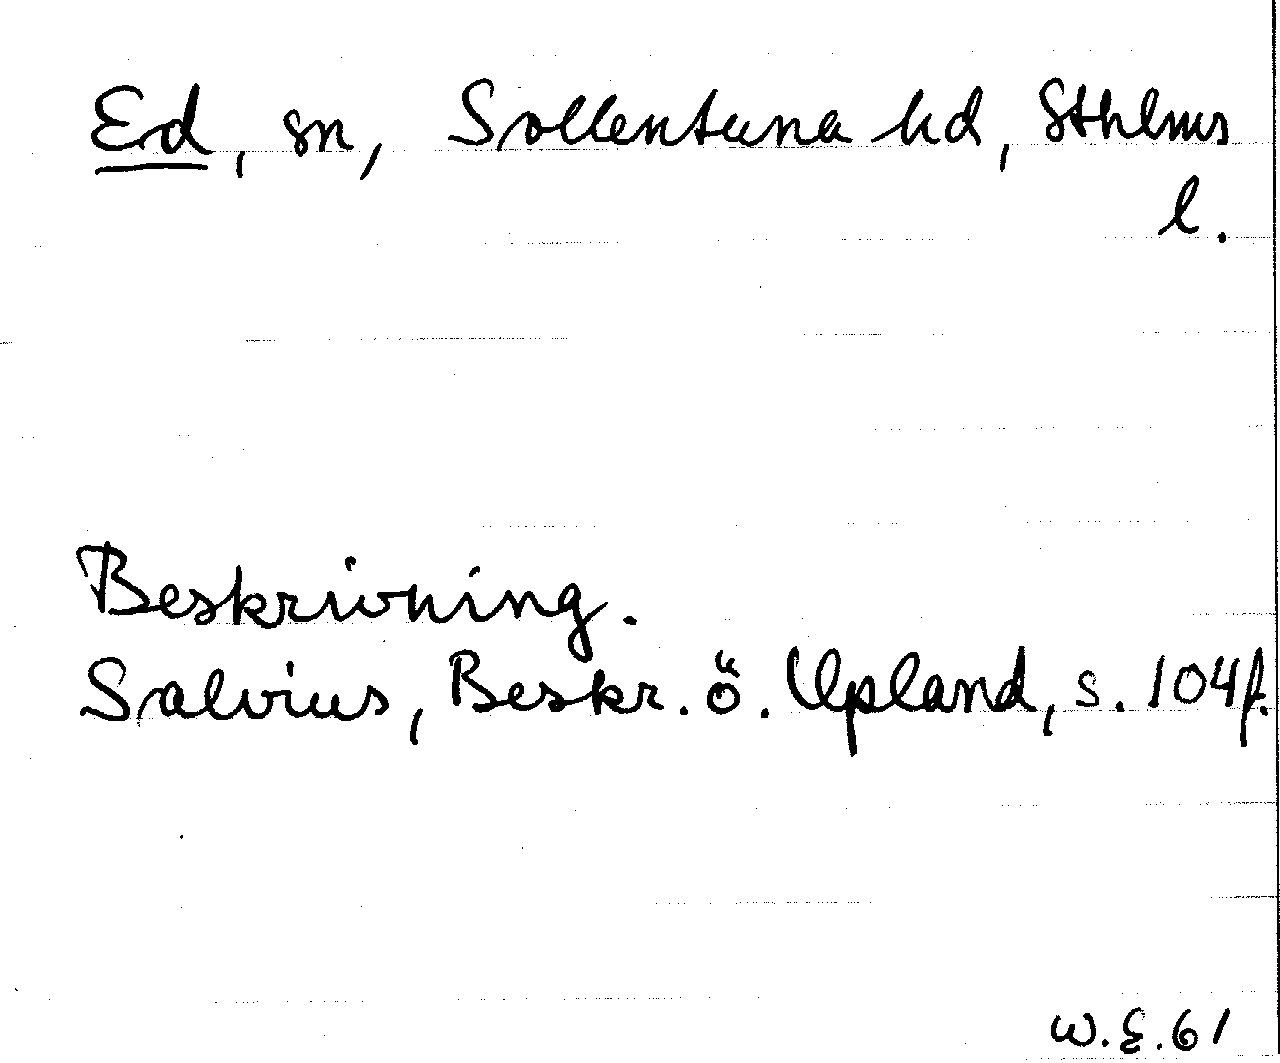 Ed, sn, Sollentuna hd, Sthlms
l.
Beskrivning.
Salvius, Beskr. ö. Upland, s. 104f.
W.E.61